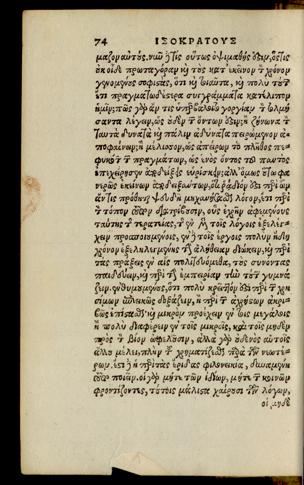 74 ΙΣΟΚΡΑΤΟΥΣ
μαζον αὐτός. νῦν δὲ τίς οὕτως ὀψιμαθής ἐστιν, ὅστις
οὐκ οἶδε πρωταγόραν καὶ τοὺς κατ' ἐκεῖνον τὸν χρόνον
γενομένους σοφιστάς, ὅτι καὶ τοιαῦτα, καὶ πολὺ τούτων
πραγματωδέστερα συγγράμματα κατέλιπον
ἡμῖν; πῶς γὰρ ἄν τις ὑπερβάλοιτο γοργίαν τὸν τολμή
σαντα λέγειν, ὡς οὐδὲν τῶν ὄντων ἔστιν; ἢ ζήνωνα τὸν
ταυτὰ δυνατὰ καὶ πάλιν ἀδύνατα πειρώμενον ἀ
ποφαίνειν; ἢ μέλισσον, ὃς ἀπείρων τὸ πλῆθος πε
φυκότων τῶν πραγμάτων, ὡς ἑνὸς ὄντος τοῦ παντὸς
ἐπεχείρησεν ἀποδείξεις εὑρίσκειν; ἀλλ' ὅμως οὕτω φα
νερῶς ἐκείνων ἐπιδειξάντων, ὅτι ῥᾴδιόν ἐστι περὶ ὧν
ἄν τις πρόθηται ψευδῆ μηχανήσασθαι λόγον, ἔτι περὶ
τὸν τόπον τοῦτον διατρίβουσιν, οὓς ἐχρῆν ἀφεμένους
ταύτης τῆς τερατείας, τῆς ἐν μὲν τοῖς λόγοις ἐξελέγ-
χειν προσποιουμένοις, ἐν δὲ τοῖς ἔργοις πολὺν ἤδη
χρόνον ἐξεληλεγμένης τὴν ἀλήθειαν διώκειν, καὶ περὶ
τὰς πράξεις ἐν αἷς πολιτευόμεθα, τοὺς συνόντας
παιδεύειν, καὶ περὶ τὴν ἐμπειρίαν τὴν τούτων γυμνά
ζειν, ἐνθυμουμένους, ὅτι πολὺ κρεῖττόν ἐστι περὶ τῶν χρη
σίμων ἐπιεικῶς δοξάζειν, ἢ περὶ τῶν ἀχρήστων ἀκρι-
βῶς ἐπίστασθαι, καὶ μικρὸν προέχειν ἐν τοῖς μεγάλοις
ἢ πολὺ διαφέρειν ἐν τοῖς μικροῖς, καὶ τοῖς μηδὲν
πρὸς τὸν βίον ὠφελοῦσιν. ἀλλὰ γὰρ οὐδενὸς αὐτοῖς
ἄλλου μέλει, πλὴν τοῦ χρηματίζεσθαι παρὰ τῶν νεωτέ-
ρων. ἔστι δ' ἡ περὶ τὰς ἔριδας φιλονεικία, δυναμένη
τοῦτο ποιεῖν. οἱ γὰρ μήτε τῶν ἰδίων, μήτε τῶν κοινῶν
φροντίζοντες, τούτοις μάλιστα χαίρουσι τῶν λόγων,
οἳ μηδὲ